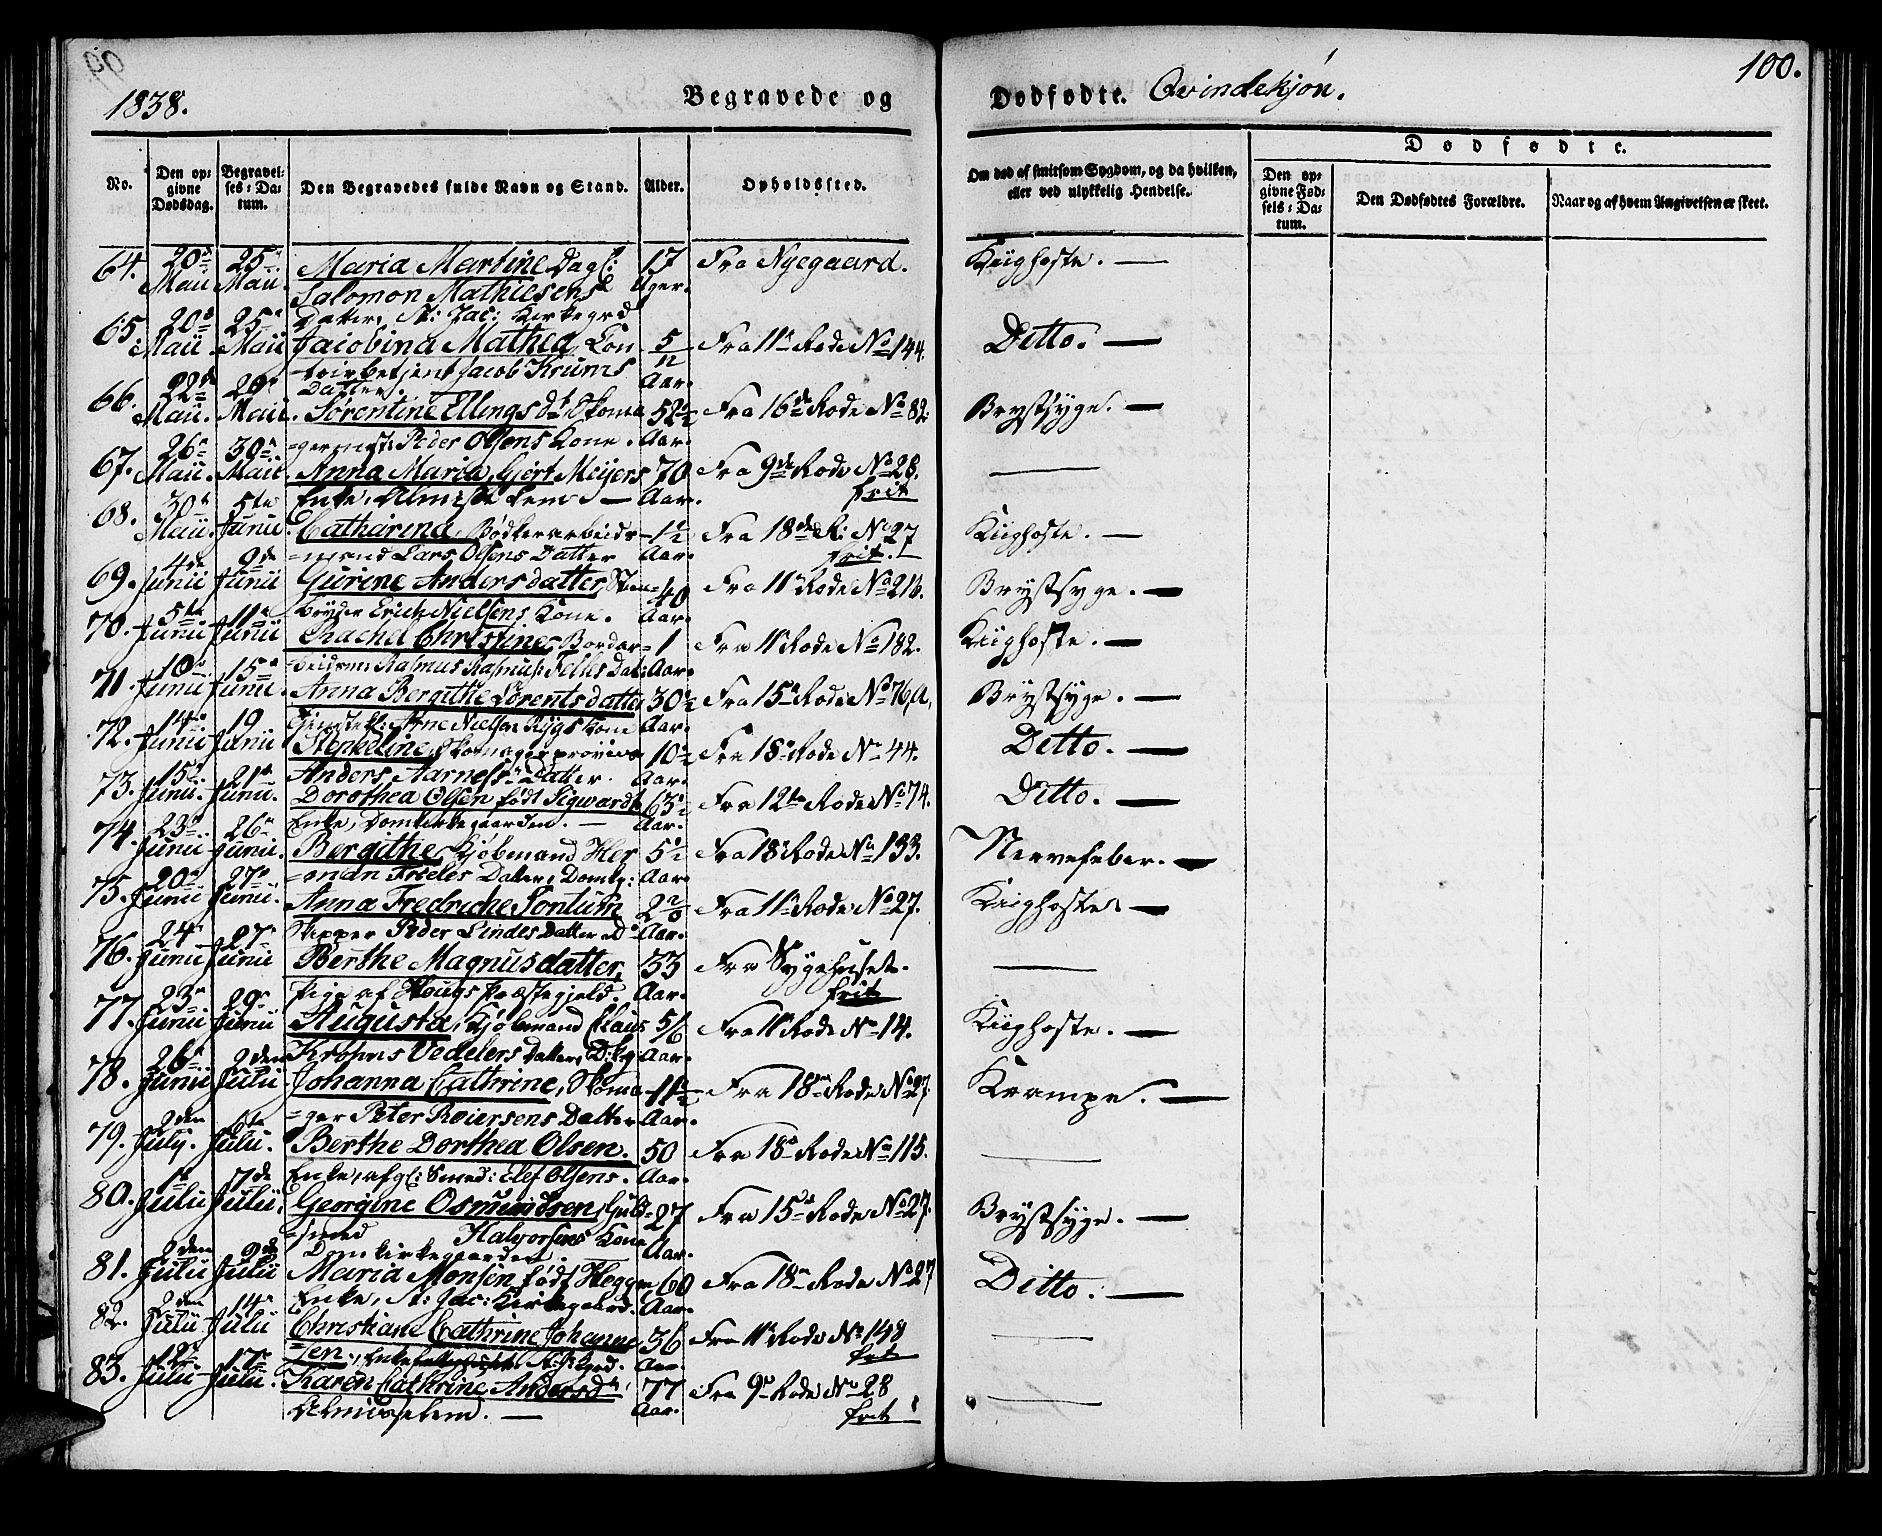 1838.
Begravede og
Dødfødte. Qvindekjøn.
100.
No.
Den opgivne Dødsdag.
Begravelses-Datum.
Den Begravedes fulde Navn og Stand.
Alder.
Opholdssted.
Om død af smitsom Sygdom, og da hvilken, eller ved ulykkelig Hendelse.
Dødfødte.
Den opgivne Fødsels-Datum.
Den Dødfødtes Forældre.
Naar og af hvem Angivelsen er skeet.
64. 20de Maii 25de Maii. Maria Martine Dagl: 17 Uger. Fra Nyegaard. Kiighoste. —
Salomon Mathiesens
Datter, St: Jac: Kirkegrd
65. 20de Maii. 25de Maii Jacobina Mathea, Con 5/12 Aar. Fra 11te Rode No 144. Ditto. —
toirbetjent Jacob Krums
Datter.
66. 22de Maii. 29de Maii. Sørentine Ellingsdr Skoma 52½ Aar. Fra 16de Rode No 82. Brystsyge. —
=germest: Peder Olsens Kone.
67. 26de Maii. 30de Maii. Anna Maria, Gjert Meijers 70 Aar. Fra 9de Rode No 28. frit —
Enke, Almisse Lem. —
68. 30de Maii. 5te Junii. Catharina, Bødkerarbeids- 1½ Aar. Fra 18de R: No 27 frit. Kiighoste. —
=mand Lars Olsens Datter
69. 4de Junii 9de Junii Gurine Andersdatter, Steen= 40 Aar. Fra 11te Rode No 216. Brystsyge. —
bryder Erich Nielsens Kone.
70. 5te Junii 11te Junii Rachel Christine, Bordar= 1 Aar. Fra 11te Rode No 182. Kiighoste. —
=beidsm: Rasmus Rasmus: Dat:
71. 10de Junii 15de Junii. Anna Bergithe Lorentsdatter 30½ Aar. Fra 15de Rode No 76,A. Brystsyge. —
Arne Nielsen Rygs Kone
72. 14de Junii 19 Junii Stenkeline, Skomager 10½ Aar. Fra 18de Rode No 44. Ditto. —
Anders Aarness Datter.
73. 15de Junii. 21de Junii. Dorothea Olsen født Sigwardt 63½ Aar. Fra 12te Rode No 74. Ditto. —
Enke, Domkirkegaarden. —
74. 23de Junii 26de Junii. Bergithe, Kjøbmand Her 5½ Aar. Fra 18de Rode No 133. Nervefeber. —
=man Frieles Datter, Domkg:
75. 20de Junii 27de Junii. Anna Fredriche Sontum Aar. Fra 11te Rode No 27. Kiighoste. —
Skipper Peder Lindes Datter
76. 24de Junii 27de Junii Berthe Magnusdatter, 33 Aar. Fra Sygehuset. frit —
Pige af Hougs Præstegjeld.
77. 23de Junii 29de Junii Augusta, Kjøbmand Claus 5/6 Aar. Fra 11te Rode No 14. Kiighoste. —
Krohns Vedelers Datter, D:kg
78. 26de Junii 2den Julii Johanna Cathrine, Skoma- 1½ Aar. Fra 18de Rode No 27. Krampe. —
=ger Peter Roiersens Datter
79. 2den July. 6te Julii. Berthe Dorthea Olsen. 50 Aar. Fra 18de Rode No 115. —
Enke, af gl: Smed: Elef Olsens.
80. 1te Julii 7de Julii, Georgine Osmundsen, Guld= 27 Aar. Fra 15de Rode No 27. Brystsyge. —
=smed Halvorsens Kone
Domkirkegaarden.
81. 2den Julii 9de Julii Maria Monsen født Hegge 60 Aar. Fra 18de Rode No 27 Ditto. —
Enke, St: Jac: Kirkegaard.
82. 2den Julii 14de Julii Christiane Cathrine Johanne 36 Aar. Fra 11te Rode No 148 frit —
=sen, Enke St: J: Grd.
83. 12te Julii 17de Julii. Karen Cathrine Andersdr 77 Aar. Fra 9de Rode No 28 frit —
Almisselem. —